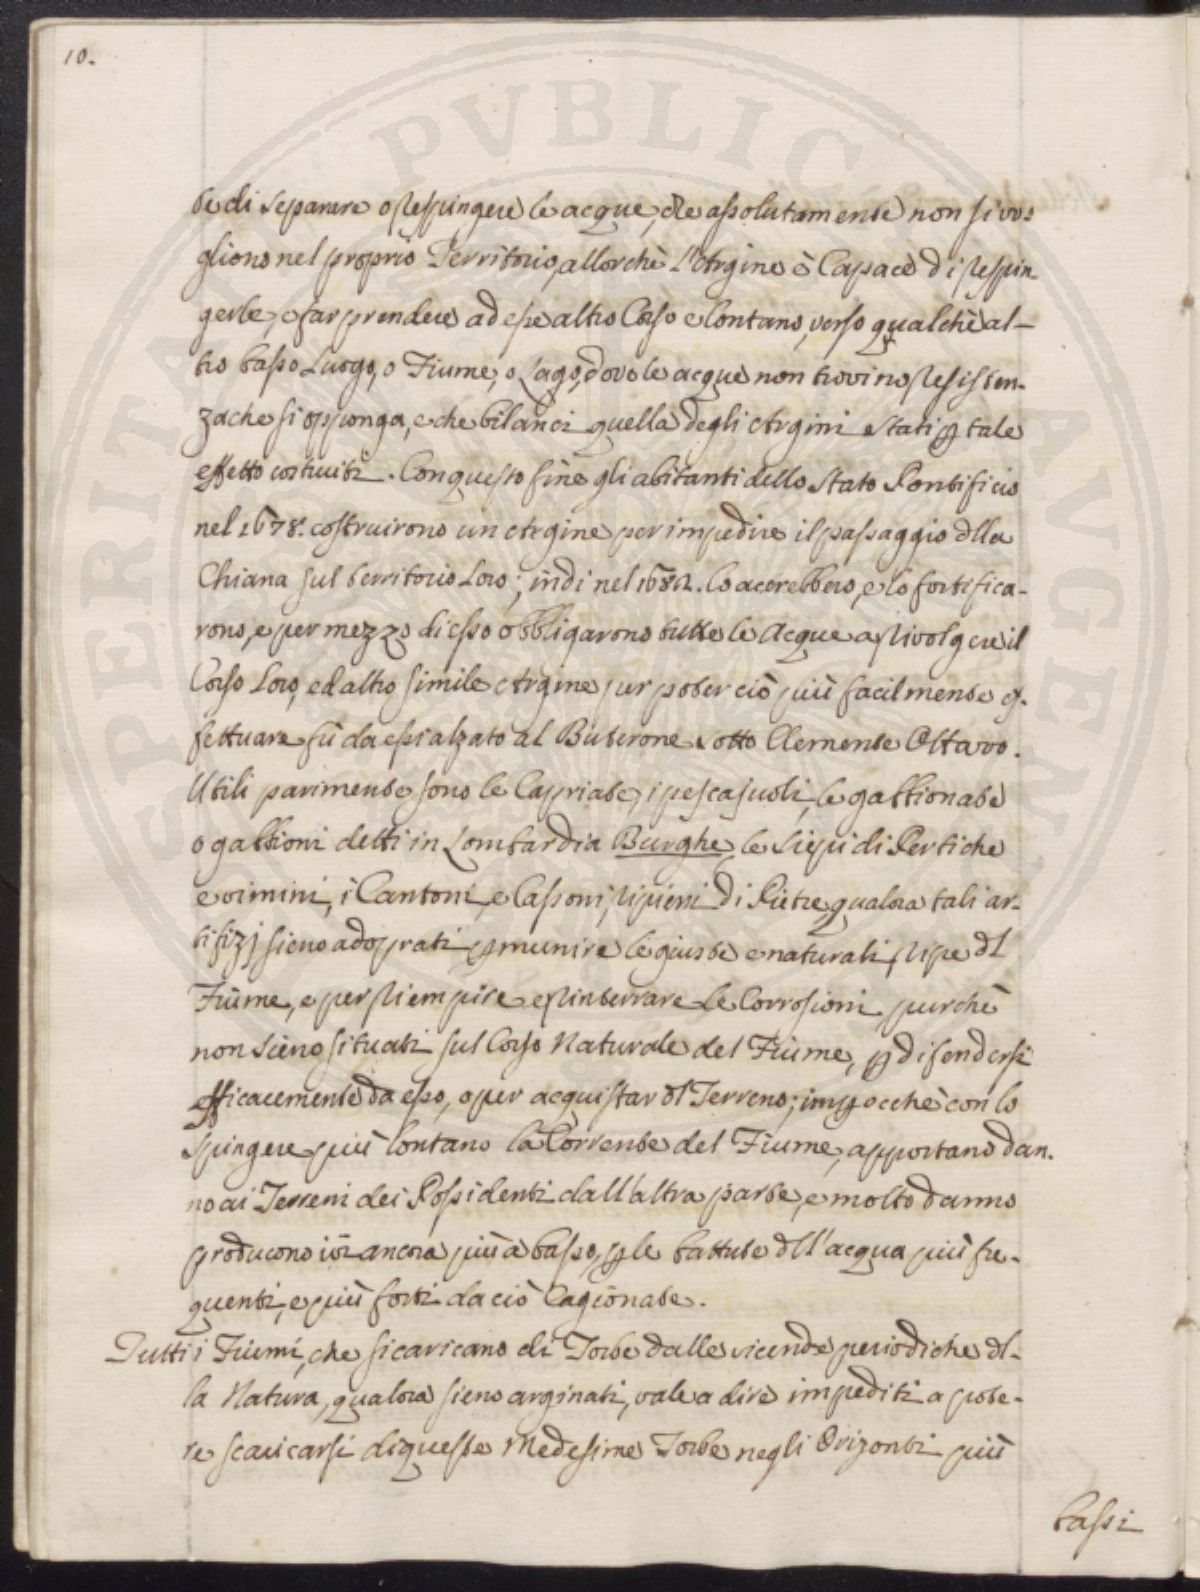 10.
te di separare o respingere le acque, che assolutamente non si vo=
gliono nel proprio Territorio, allorchè l'Argine è Capace di respin-
gerle, e far prendere ad esse altro Corso e lontano, verso qualche al-
tro basso Luogo, o Fiume, o Lago, dove le acque non trovino resisten-
za che si opponga, e che bilanci quella degli Argini stati p tale
effetto costruiti. Con questo fine gli abitanti dello Stato Pontificio
nel 1678. costruirono un Argine per impedire il passaggio dlla
Chiana sul territorio Loro; indi nel 1682. lo accrebbero, e lo fortifica-
rono, e per mezzo di esso obbligarono tutte le Acque a rivolgere il
Corso Loro, ed altro simile Argine per poter ciò più facilmente ef-
fettuare fù da essi alzato al Buterone sotto Clemente Ottavo.
Utili parimente sono le Capriate, i pescajuoli, le gabbionate
o gabbioni detti in Lombardia Burghe, le siepi di Pertiche
e vimini, i Cantoni, e Cassoni ripieni di Pietre, qualora tali ar-
tifizj sieno adoprati p munire le giuste e naturali ripe dl
Fiume, e per riempire e rinserrare le Corrosioni purchè
non sieno situati sul Corso Naturale del Fiume, p difendersi
efficacemente da esso, o per acquistar dl Terreno; impocchè con lo
spingere più lontano la Corrente del Fiume, apportano dan-
no ai Terreni dei Possidenti dall'altra parte, e molto danno
producono ivi ancora più a basso, p le battute dll'acqua più fre-
quenti, e più forti da ciò Cagionate.
Tutti i Fiumi, che si caricano di Torbe dalle vicende periodiche dl-
la Natura, qualora sieno arginati, vale a dire impediti a pote-
re scaricarsi di queste medesime Torbe negli Orizonti più
bassi
PERITAE PVBLICAE AVGEN